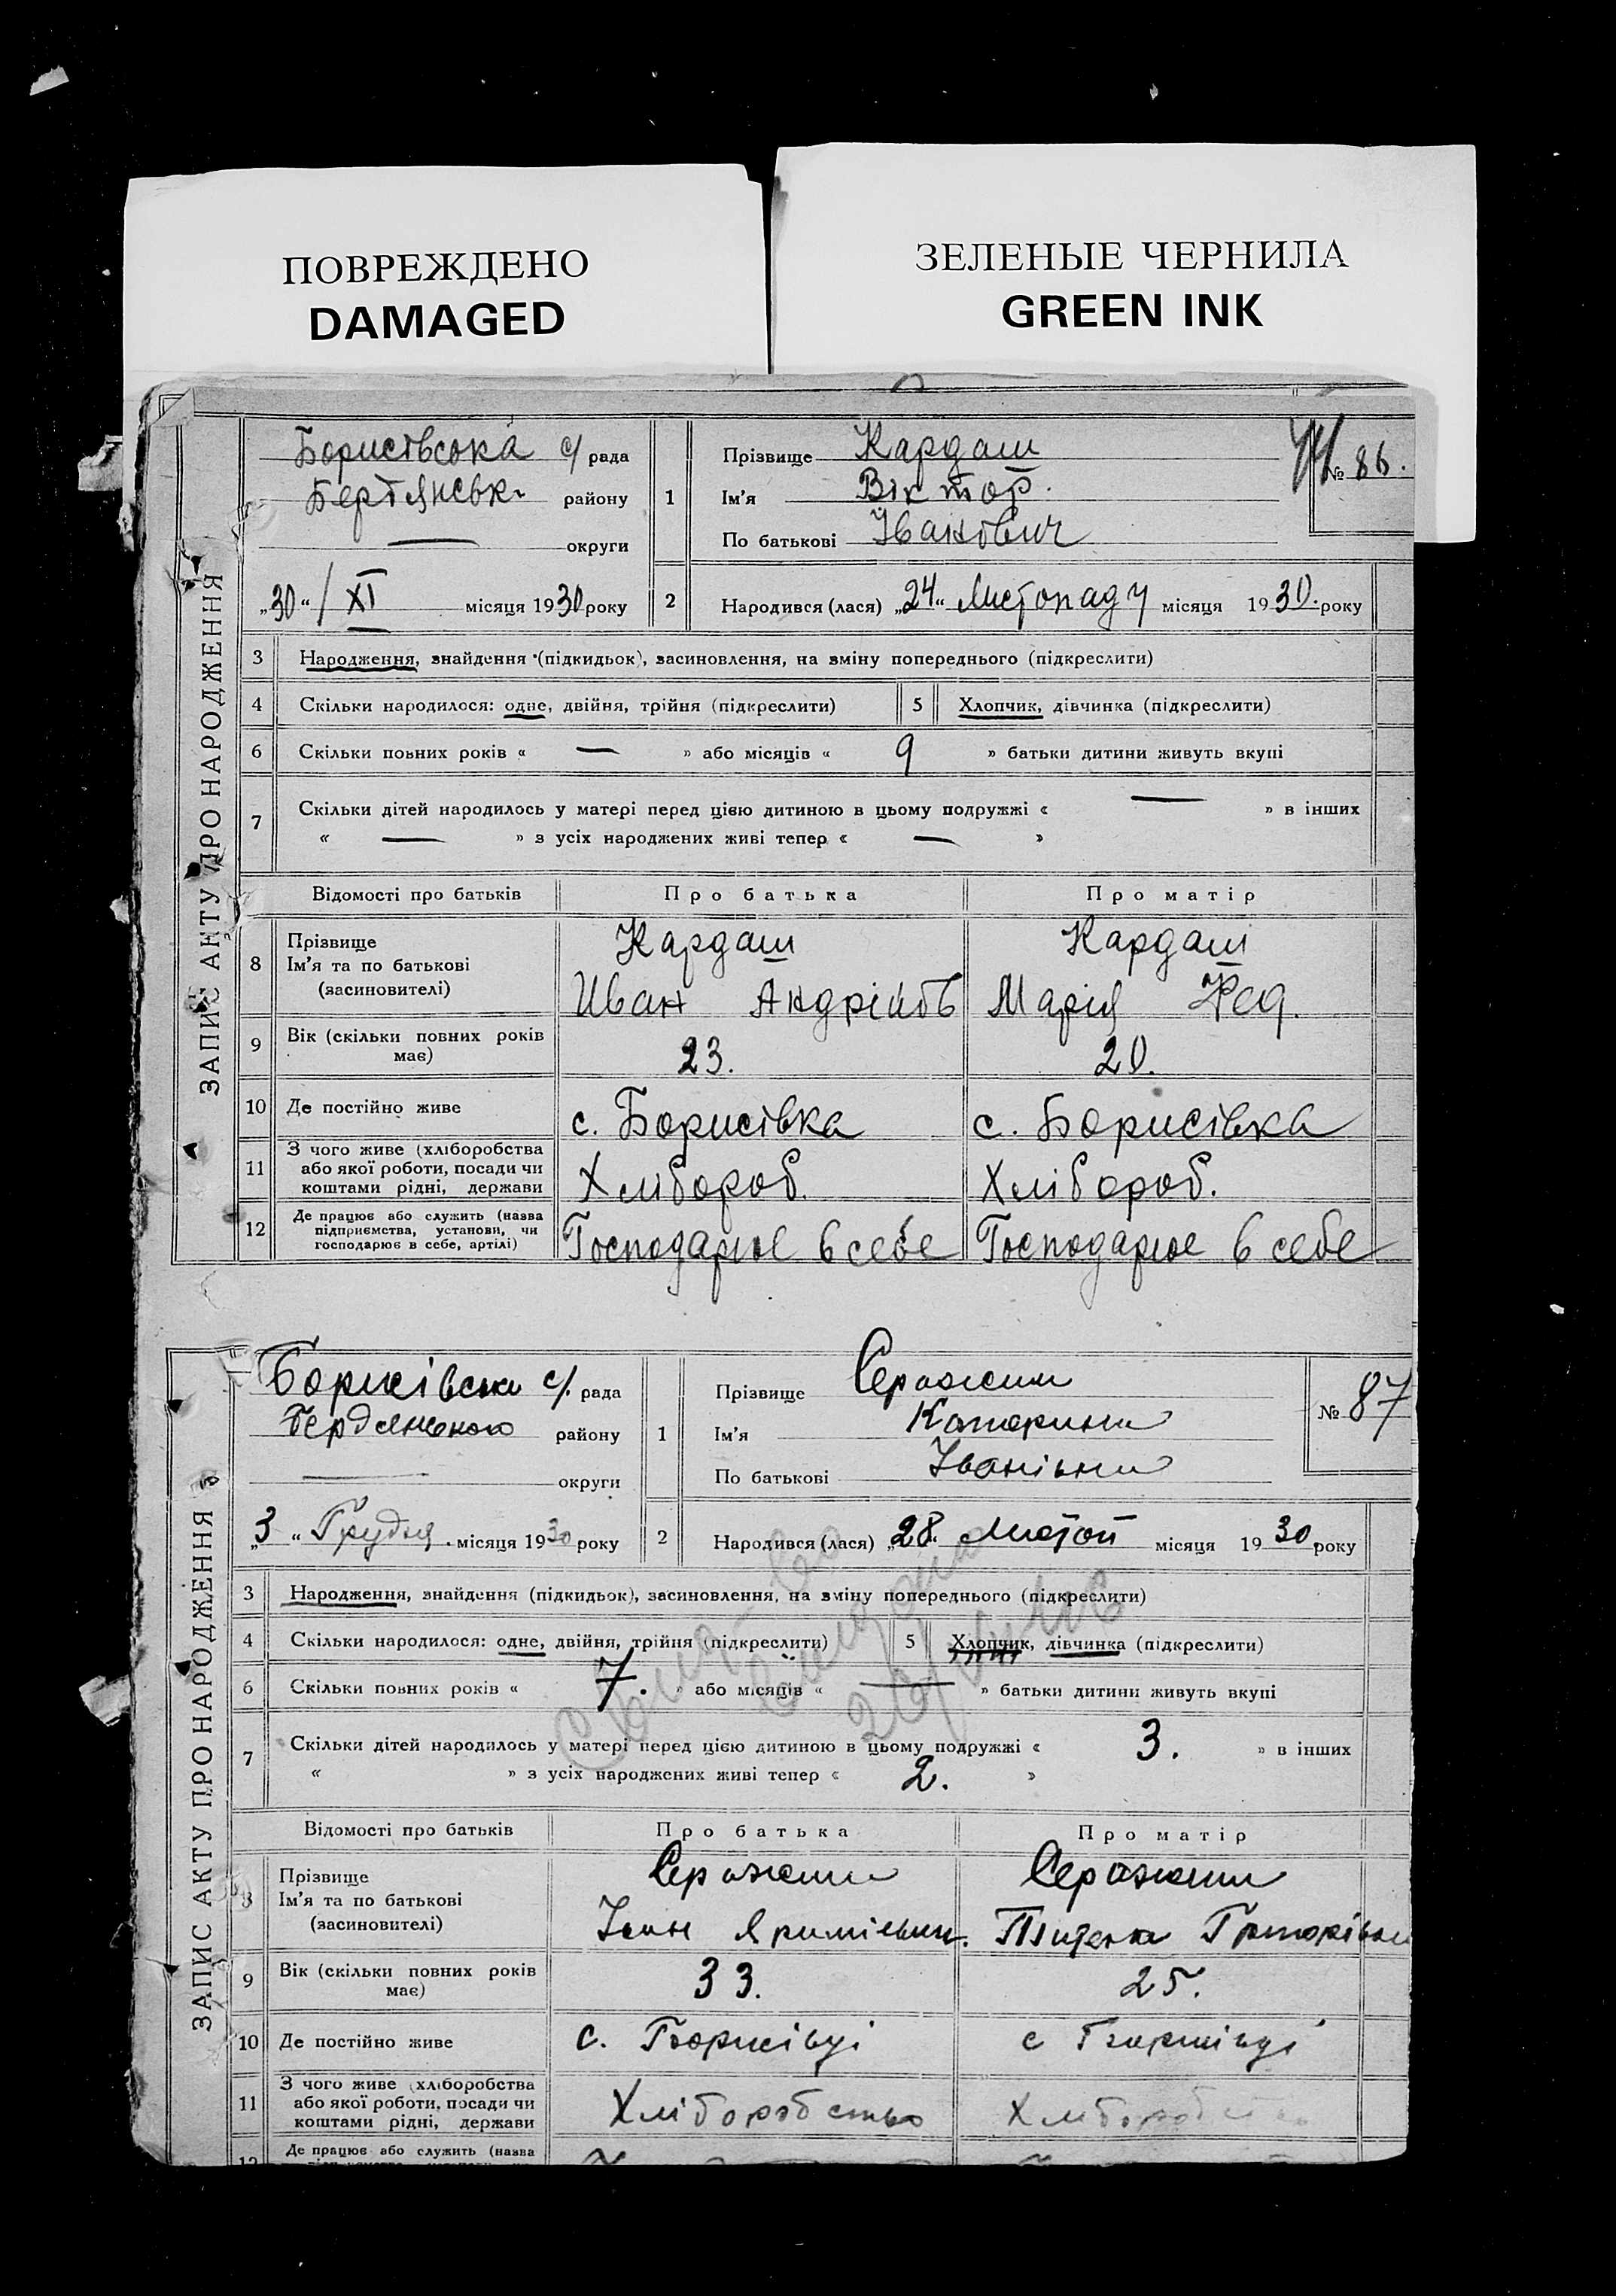 ПОВРЕЖДЕНО
DAMAGED
ЗЕЛЕНЫЕ ЧЕРНИЛА
GREEN INK
ЗАПИС АКТУ ПРО НАРОДЖЕННЯ
Борисівська с/ рада
Бердянськ. району
— округи
„30“/XI місяця 1930 року
1
Прізвище Кардаш
Ім'я Віктор.
По батькові Іванович
№ 86.
2
Народився (лася) „24“ Листопаду місяця 1930. року
3 Народження, знайдення (підкидьок), засиновлення, на зміну попереднього (підкреслити)
4 Скільки народилося: одне, двійня, трійня (підкреслити) 5 Хлопчик, дівчинка (підкреслити)
6 Скільки повних років « — » або місяців « 9 » батьки дитини живуть вкупі
7 Скільки дітей народилось у матері перед цією дитиною в цьому подружжі « — » в інших
« — » з усіх народжених живі тепер « — »
Відомості про батьків Про батька Про матір
8 Прізвище
Ім'я та по батькові
(засиновителі)
Кардаш
Иван Андріков
Кардаш
Марія Фед.
9 Вік (скільки повних років
має)
23. 20.
10 Де постійно живе с. Борисівка с. Борисівка
11 З чого живе (хліборобства
або якої роботи, посади чи
коштами рідні, держави
Хлібороб. Хлібороб.
12 Де працює або служить (назва
підприємства, установи, чи
господарює в себе, артілі)
Господарює в себе Господарює в себе
ЗАПИС АКТУ ПРО НАРОДЖЕННЯ
Борисівська с/. рада
Бердянського району
— округи
„3“ Грудня місяця 1930 року
1
Прізвище
Ім'я Катерина
По батькові Іванівна
№ 87
2
Народився (лася) „28“ Листоп місяця 1930 року
3 Народження, знайдення (підкидьок), засиновлення, на зміну попереднього (підкреслити)
4 Скільки народилося: одне, двійня, трійня (підкреслити) 5 Хлопчик, дівчинка (підкреслити)
6 Скільки повних років « 7. » або місяців « — » батьки дитини живуть вкупі
7 Скільки дітей народилось у матері перед цією дитиною в цьому подружжі « 3. » в інших
« » з усіх народжених живі тепер « 2. »
Відомості про батьків Про батька Про матір
8 Прізвище
Ім'я та по батькові
(засиновителі)
Іван
Григорівна
9 Вік (скільки повних років
має)
33. 25.
10 Де постійно живе с. Борисівці с Борисівці
11 З чого живе (хліборобства
або якої роботи, посади чи
коштами рідні, держави
Хліборобство Хліборобство
12 Де працює або служить (назва